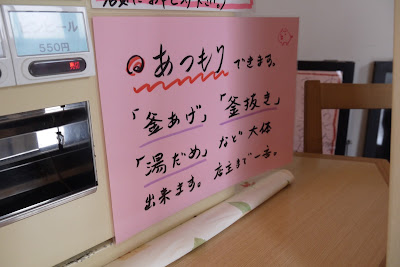 550円
あつもり できます。
「釜あげ」「釜抜き」
「湯だめ」など大体
出来ます。店主まで一言。